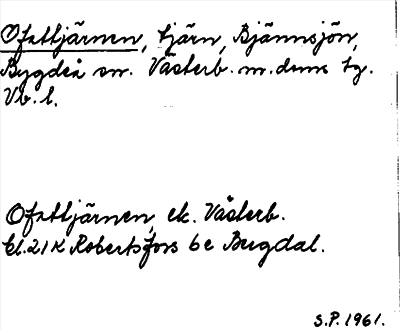 Ofattjärnen, tjärn, Bjännsjön,
Bygdeå sn. Västerb. m. doms tg.
Vb. l.
Ofattjärnen, ek. Västerb.
bl. 21 K Robertsfors 6 e Bugdal.
S.P. 1961.